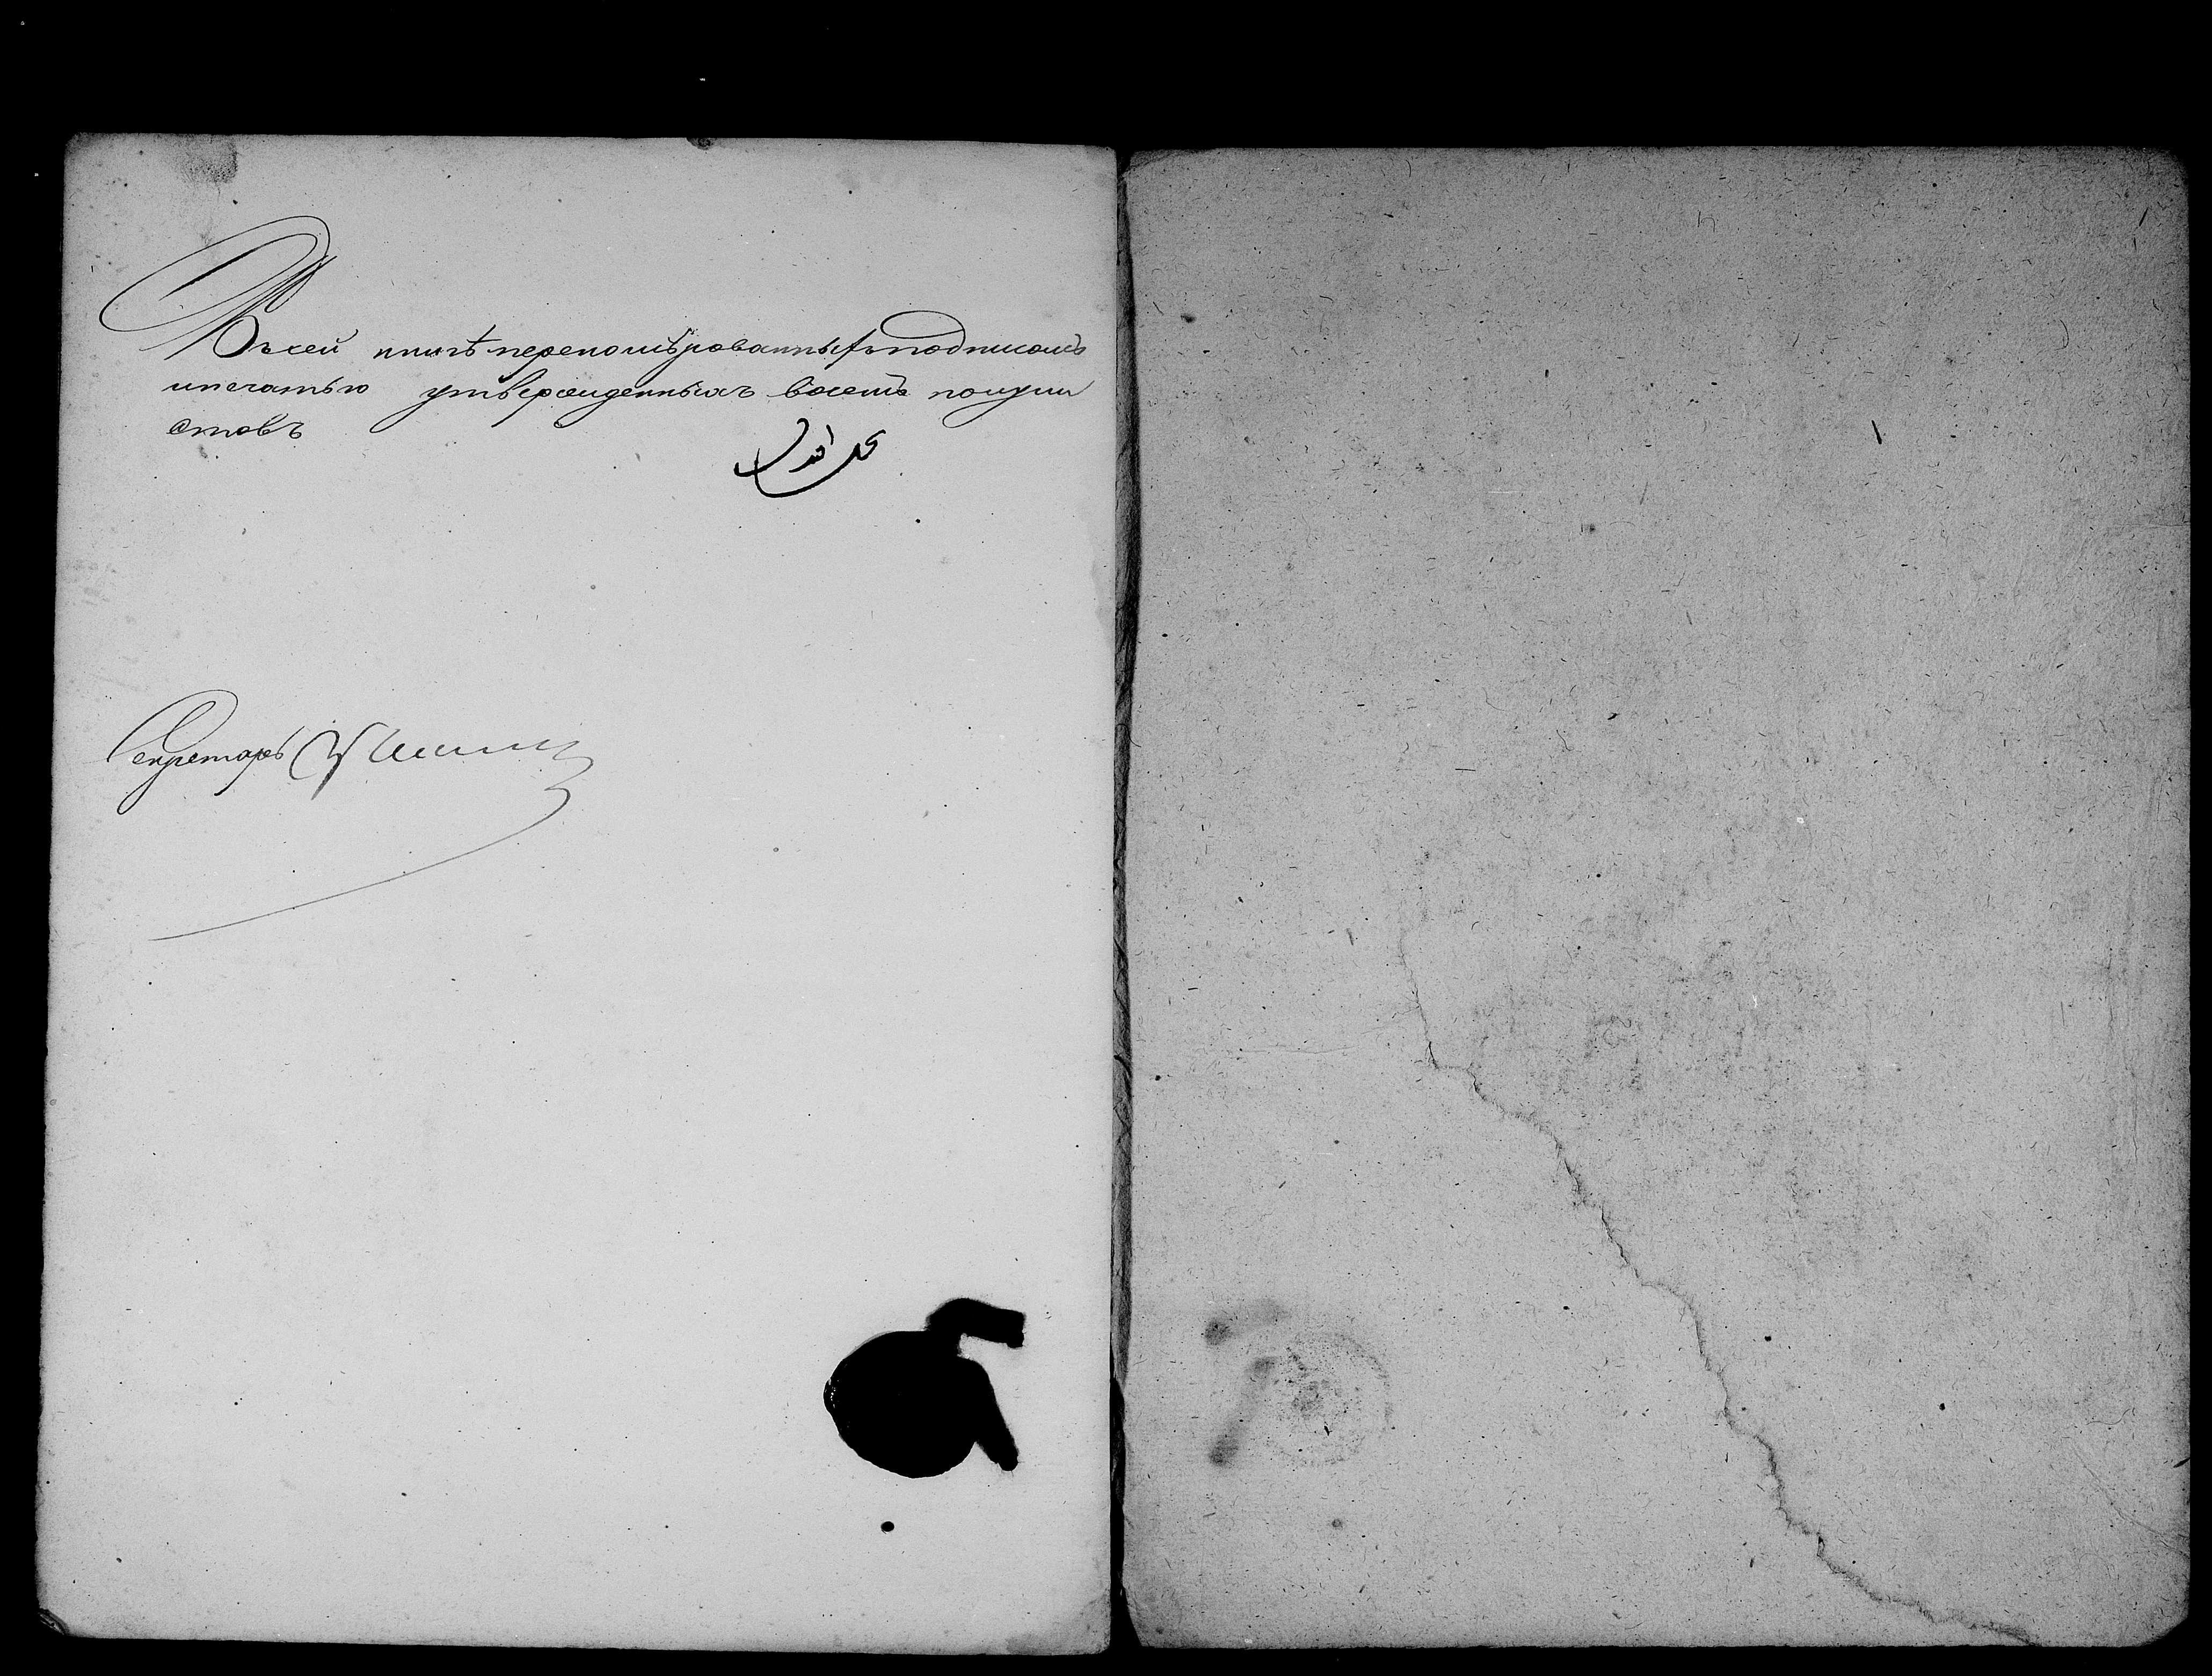 Въ сей книгѣ переномѣрованныхъ подписомъ
и печатью утвержденныхъ восемь полули
стовъ
Секретарь